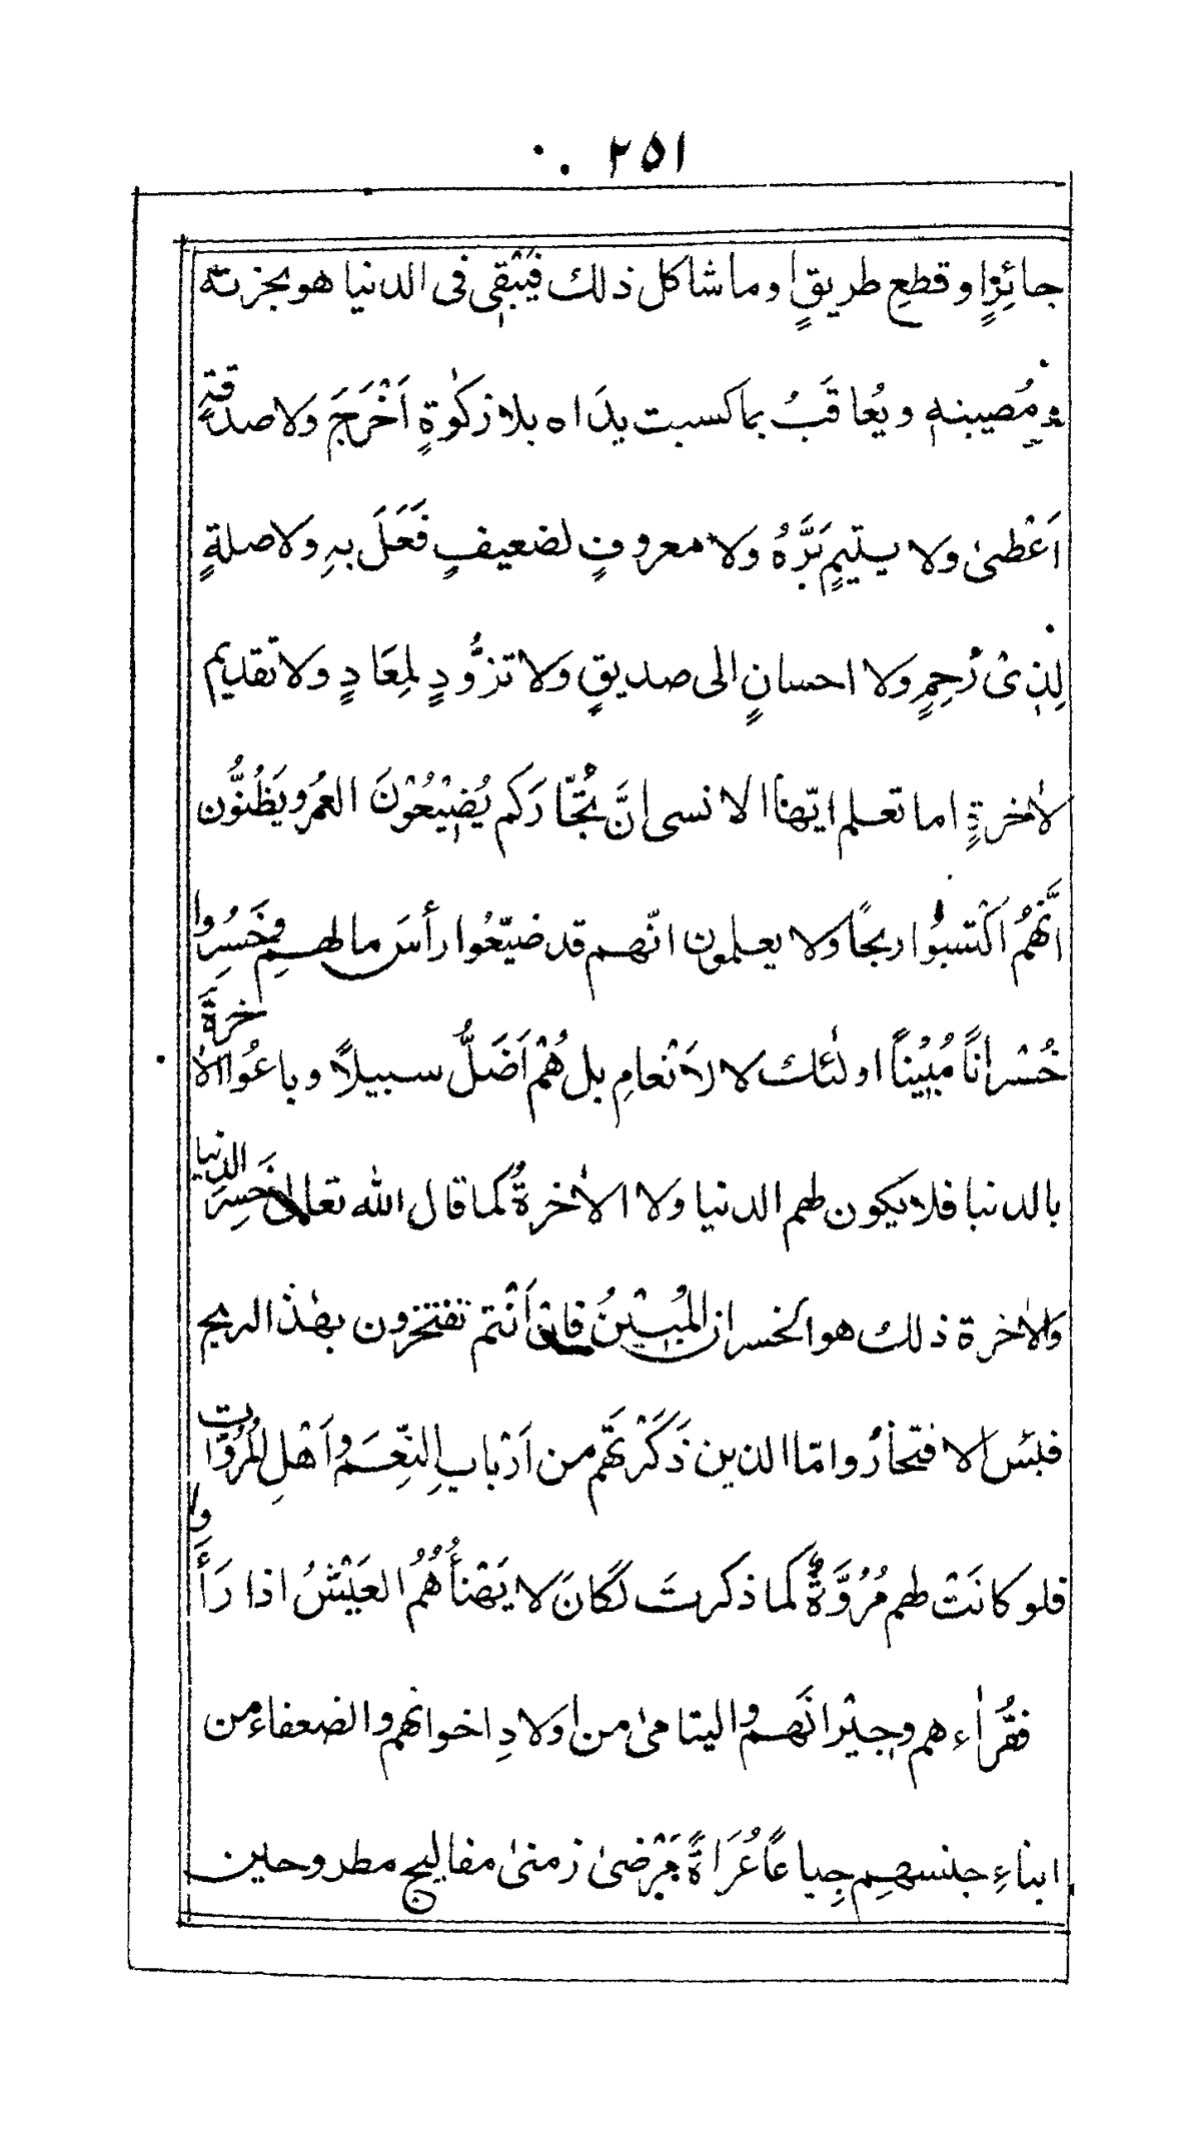 ٢٥١
جائِزٍ او قطعِ طريقٍ او ما شاكل ذلك فيَبْقىٰ فى الدنيا هو بحزنه
و مُصيبته و يُعاقَبُ بما كسبت يدَاه بلا زكٰوةٍ اَخْرَجَ ولا صدقةٍ
اَعْطىٰ ولا يتيمٍ بَرَّهُ ولا معروفٍ لضعيفٍ فَعَلَ بهِ ولا صلةٍ
لِذِىْ رَحِمٍ ولا احسانٍ الى صديقٍ ولا تزوُّدٍ لِمَعَادٍ ولا تقديم
لاٰخرةٍ اما تعلم ايّها الانسى انَّ تُجّارَكم يُضيْعُوْنَ العمُرَ ويَظُنُّون
اَنَّهُمُ اكْتسبُوا ربحًا ولا يعلمون انّهم قد ضيّعُوا رأسَ مالهم وخَسِرُوا
خُسْرانًا مُبيْناً اولٰئك كالاَنْعامِ بل هُمْ اَضَلُّ سبيلاً و باعُوا الاٰخرةَ
بالدنيا فلا يكون لهم الدنيا ولا الاٰخرةُ كما قال الله تعالىٰ خَسِرَ الدنيا
والاٰخرة ذلك هو الخسران المُبِيْنُ فان اَنْتم تفتخرون بهٰذا الربح
فبئس الافتخارُ وامّا الذين ذَكَرْتَهم من اَرْبابِ النِّعَمِ و اَهْلِ المُرُوّات
فلو كانَتْ لهم مُرُوَّةٌ كما ذكرتَ لَكانَ لا يَهْنأُهُمُ العَيْشُ اذا رَأَوا
فقُراٰءهم وجيْرانَهم واليتامىٰ من اولادِ اخوانهم والضعفاء من
ابناءِ جنسهم جِياعًا عُرَاةً مَرْضىٰ زمنىٰ مفاليج مطروحين